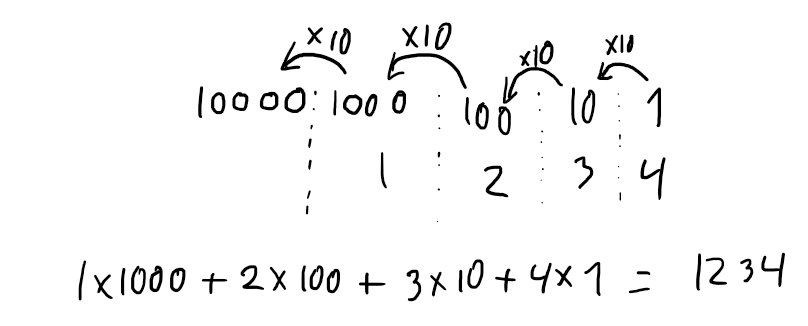 ×10 ×10 ×10 ×10
10000 1000 100 10 1
1 2 3 4
1×1000 + 2×100 + 3×10 + 4×1 = 1234